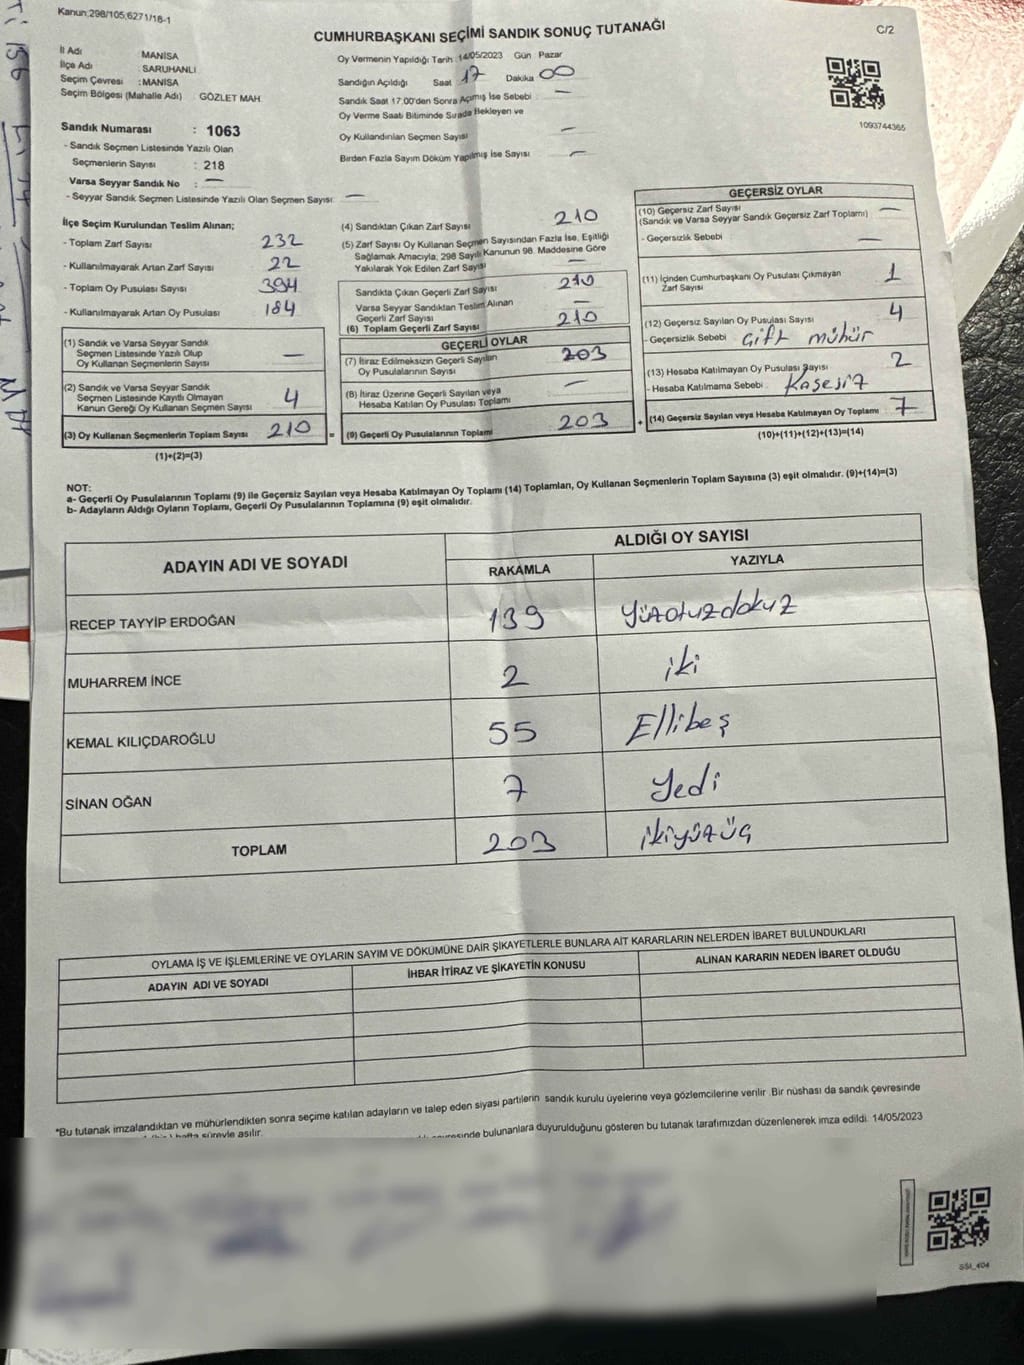 Kanun:298/105;6271/18-1
CUMHURBAŞKANI SEÇİMİ SANDIK SONUÇ TUTANAĞI
C/2
İl Adı MANİSA
İlçe Adı : SARUHANLI
Seçim Çevresi : MANİSA
Seçim Bölgesi (Mahalle Adı) GÖZLET MAH.
Sandık Numarası : 1063
- Sandık Seçmen Listesinde Yazılı Olan
Seçmenlerin Sayısı : 218
Varsa Seyyar Sandık No : —
- Seyyar Sandık Seçmen Listesinde Yazılı Olan Seçmen Sayısı: —
Oy Vermenin Yapıldığı Tarih :14/05/2023 Gün : Pazar
Sandığın Açıldığı Saat : 17 Dakika : 00
Sandık Saat 17:00'den Sonra Açmış İse Sebebi : —
Oy Verme Saati Bitiminde Sırada Bekleyen ve
Oy Kullandırılan Seçmen Sayısı —
Birden Fazla Sayım Döküm Yapılmış İse Sayısı —
1093744365
İlçe Seçim Kurulundan Teslim Alınan;
- Toplam Zarf Sayısı 232
- Kullanılmayarak Artan Zarf Sayısı 22
- Toplam Oy Pusulası Sayısı 394
- Kullanılmayarak Artan Oy Pusulası 184
(1) Sandık ve Varsa Seyyar Sandık
Seçmen Listesinde Yazılı Olup
Oy Kullanan Seçmenlerin Sayısı —
(2) Sandık ve Varsa Seyyar Sandık
Seçmen Listesinde Kayıtlı Olmayan
Kanun Gereği Oy Kullanan Seçmen Sayısı 4
(3) Oy Kullanan Seçmenlerin Toplam Sayısı 210 =
(1)+(2)=(3)
(4) Sandıktan Çıkan Zarf Sayısı 210
(5) Zarf Sayısı Oy Kullanan Seçmen Sayısından Fazla İse, Eşitliği
Sağlamak Amacıyla, 298 Sayılı Kanunun 98. Maddesine Göre
Yakılarak Yok Edilen Zarf Sayısı —
Sandıkta Çıkan Geçerli Zarf Sayısı 210
Varsa Seyyar Sandıktan Teslim Alınan
Geçerli Zarf Sayısı —
(6) Toplam Geçerli Zarf Sayısı 210
GEÇERLİ OYLAR
(7) İtiraz Edilmeksizin Geçerli Sayılan
Oy Pusulalarının Sayısı 203
(8) İtiraz Üzerine Geçerli Sayılan veya
Hesaba Katılan Oy Pusulası Toplamı —
(9) Geçerli Oy Pusulalarının Toplamı 203 +
GEÇERSİZ OYLAR
(10) Geçersiz Zarf Sayısı —
(Sandık ve Varsa Seyyar Sandık Geçersiz Zarf Toplamı)
- Geçersizlik Sebebi : —
(11) İçinden Cumhurbaşkanı Oy Pusulası Çıkmayan
Zarf Sayısı 1
(12) Geçersiz Sayılan Oy Pusulası Sayısı 4
- Geçersizlik Sebebi : Çift mühür
(13) Hesaba Katılmayan Oy Pusulası Sayısı 2
- Hesaba Katılmama Sebebi : Kaşesiz
(14) Geçersiz Sayılan veya Hesaba Katılmayan Oy Toplamı 7
(10)+(11)+(12)+(13)=(14)
NOT:
a- Geçerli Oy Pusulalarının Toplamı (9) ile Geçersiz Sayılan veya Hesaba Katılmayan Oy Toplamı (14) Toplamları, Oy Kullanan Seçmenlerin Toplam Sayısına (3) eşit olmalıdır. (9)+(14)=(3)
b- Adayların Aldığı Oyların Toplamı, Geçerli Oy Pusulalarının Toplamına (9) eşit olmalıdır.
ADAYIN ADI VE SOYADI ALDIĞI OY SAYISI
RAKAMLA YAZIYLA
RECEP TAYYİP ERDOĞAN 139 yüzotuzdokuz
MUHARREM İNCE 2 iki
KEMAL KILIÇDAROĞLU 55 Ellibeş
SİNAN OĞAN 7 Yedi
TOPLAM 203 ikiyüzüç
OYLAMA İŞ VE İŞLEMLERİNE VE OYLARIN SAYIM VE DÖKÜMÜNE DAİR ŞİKAYETLERLE BUNLARA AİT KARARLARIN NELERDEN İBARET BULUNDUKLARI
ADAYIN ADI VE SOYADI İHBAR İTİRAZ VE ŞİKAYETİN KONUSU ALINAN KARARIN NEDEN İBARET OLDUĞU
*Bu tutanak imzalandıktan ve mühürlendikten sonra seçime katılan adayların ve talep eden siyasi partilerin sandık kurulu üyelerine veya gözlemcilerine verilir .Bir nüshası da sandık çevresinde
hafta süreyle asılır.
bulunanlara duyurulduğunu gösteren bu tutanak tarafımızdan düzenlenerek imza edildi. 14/05/2023
SSI_404